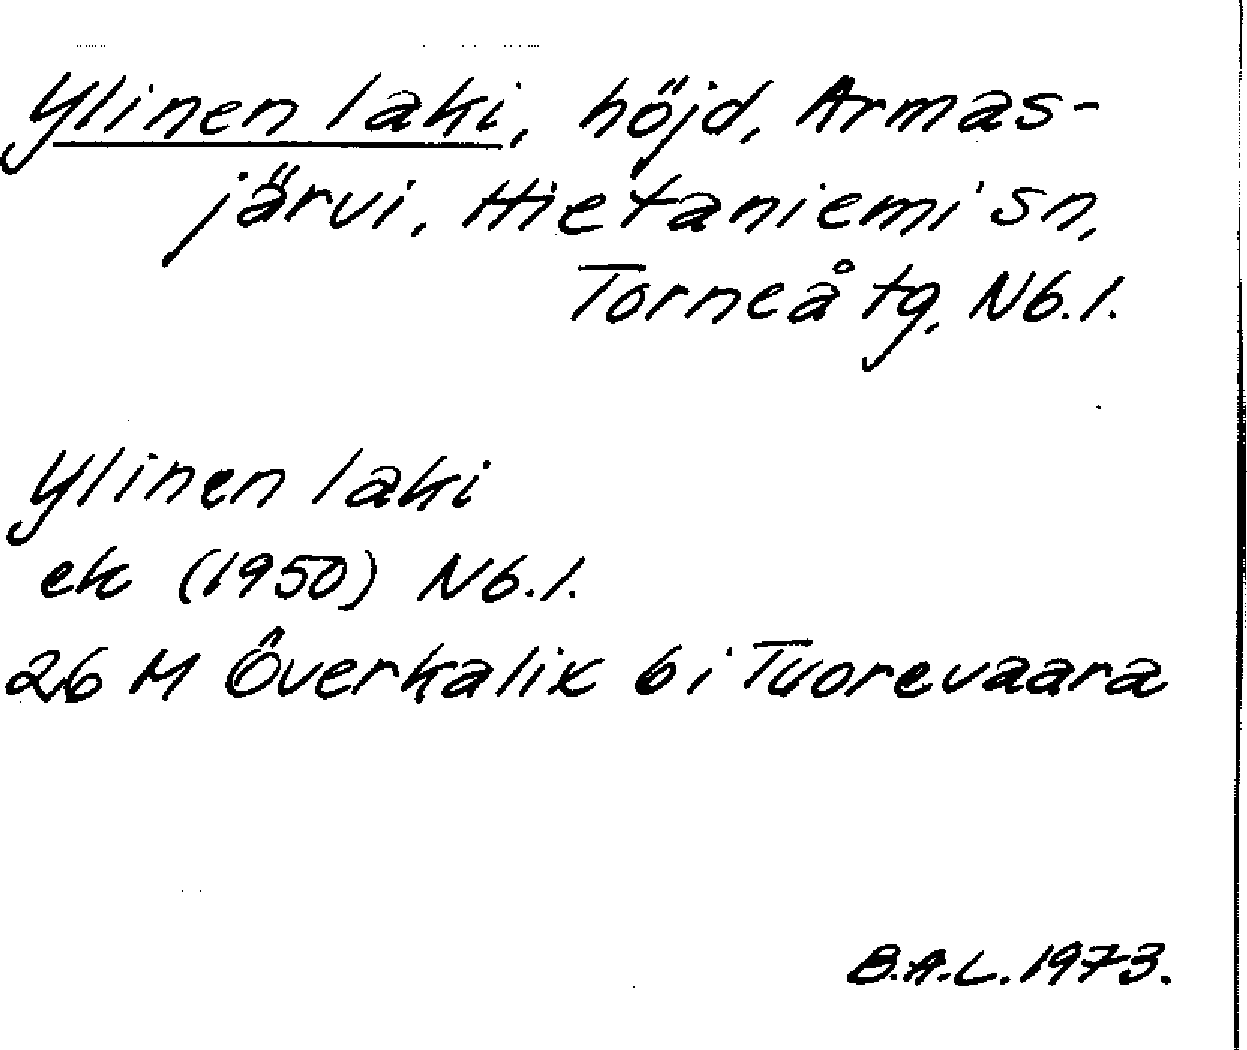 Ylinen laki, höjd, Armas-
järvi, Hietaniemi sn,
Torneå tg, Nb.l.
Ylinen laki
ek (1950) Nb.l.
26 M Överkalix 6 i Tuorevaara
B.A.L. 1973.